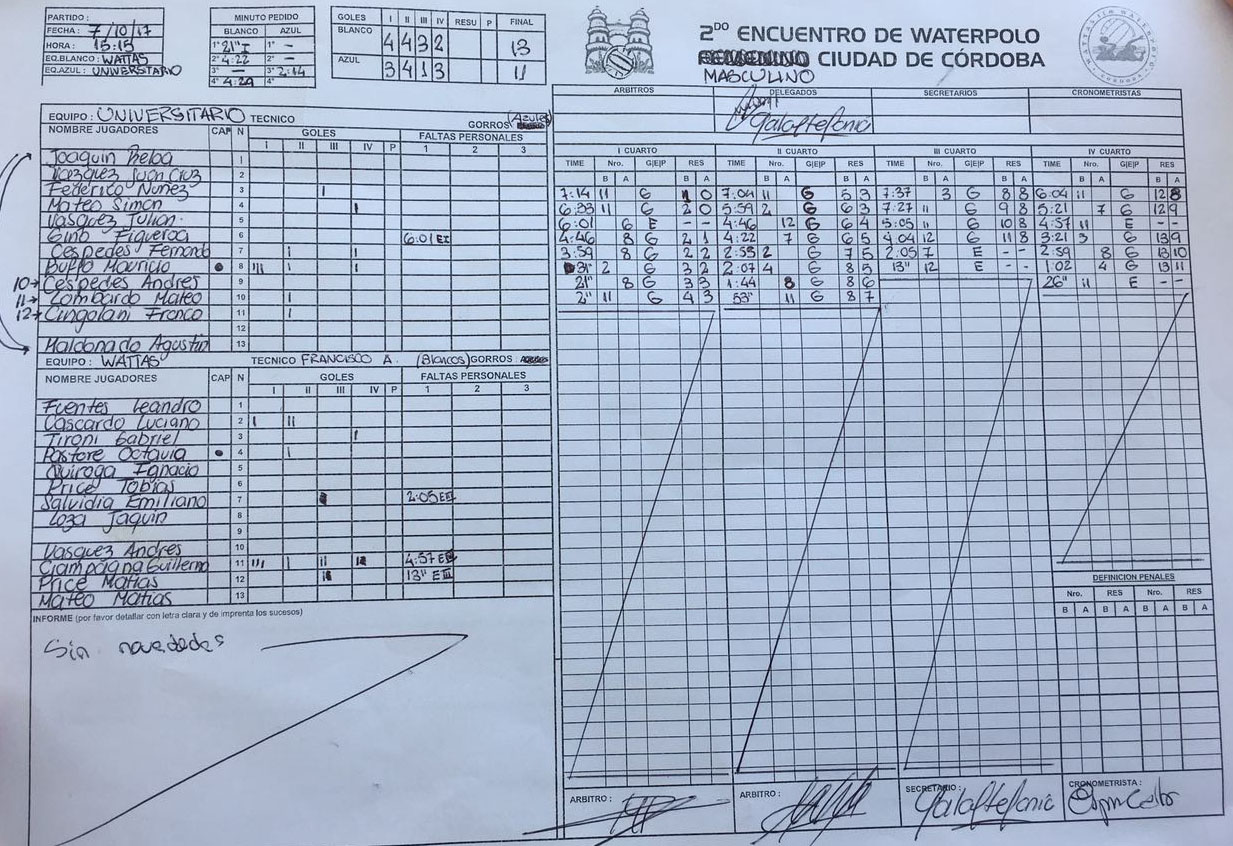 PARTIDO :
FECHA : 7/10/17
HORA : 15:15
EQ.BLANCO : WATTAS
EQ.AZUL : UNIVERSITARIO
MINUTO PEDIDO
BLANCO AZUL
1° 21" I 1° -
2° 4:22 2° -
3° - 3° 2:14
4° 4:29 4°
GOLES I II III IV RESU P FINAL
BLANCO 4 4 3 2 13
AZUL 3 4 1 3 11
2DO ENCUENTRO DE WATERPOLO
FEMENINO CIUDAD DE CÓRDOBA
MASCULINO
ARBITROS DELEGADOS SECRETARIOS CRONOMETRISTAS
EQUIPO : UNIVERSITARIO TECNICO GORROS (Azules)
NOMBRE JUGADORES CAP N GOLES FALTAS PERSONALES
I II III IV P 1 2 3
Joaquin 1
Vazquez Juan Cruz 2
Federico Nuñez 3 I
Mateo Simon 4 I
Vasquez Julian 5
Gino Figueroa 6 6:01 EI
Cespedes Fernando 7 I I
Buffo Mauricio • 8 III I I
10→ Cespedes Andres 9
11→ Lombardo Mateo 10 I
12→ Cingolani Franco 11 I
12
Maldonado Agustin 13
EQUIPO : WATTAS TECNICO FRANCISCO A. (Blancos) GORROS
NOMBRE JUGADORES CAP N GOLES FALTAS PERSONALES
I II III IV P 1 2 3
Fuentes Leandro 1
Cascardo Luciano 2 I II
Tironi Gabriel 3 I
Pastore Octavio • 4 I
Quiroga Ignacio 5
Price Tobias 6
Salvidia Emiliano 7 2:05 EIII
Loza Jaquin 8
9
Vasquez Andres 10
Ciampagna Guillermo 11 III I II I 4:57 E
Price Matias 12 I 13" EIII
Mateo Matias 13
INFORME (por favor detallar con letra clara y de imprenta los sucesos)
Sin novedades
I CUARTO
TIME Nro. G|E|P RES
B A B A
7:14 11 G 1 0
6:33 11 G 2 0
6:01 6 E - -
4:46 8 G 2 1
3:59 8 G 2 2
31" 2 G 3 2
21" 8 G 3 3
2" 11 G 4 3
II CUARTO
TIME Nro. G|E|P RES
B A B A
7:04 11 G 5 3
5:59 2 G 6 3
4:46 12 G 6 4
4:22 7 G 6 5
2:55 2 G 7 5
2:07 4 G 8 5
1:44 8 G 8 6
53" 11 G 8 7
III CUARTO
TIME Nro. G|E|P RES
B A B A
7:37 3 G 8 8
7:27 11 G 9 8
5:05 11 G 10 8
4:04 12 G 11 8
2:05 7 E - -
13" 12 E - -
IV CUARTO
TIME Nro. G|E|P RES
B A B A
6:04 11 G 12 8
5:21 7 G 12 9
4:57 11 E - -
3:21 3 G 13 9
2:59 8 G 13 10
1:02 4 G 13 11
26" 11 E - -
DEFINICION PENALES
Nro. RES Nro. RES
B A B A B A B A
ARBITRO : ARBITRO : SECRETARIO : CRONOMETRISTA :